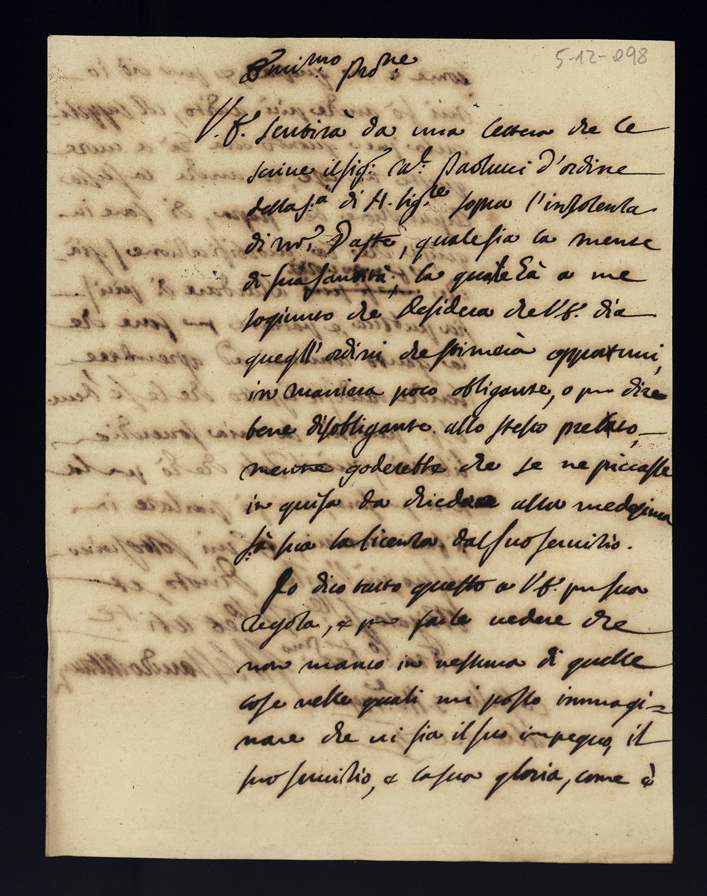 5-12-898
Emin.mo Prone
V. E. sentirà da una lettera che le
scrive il Sig.r Ab.e Paolucci d'ordine
della S.tà di N. Sig.re sopra l'insolenza
di m.r D'Aste, quale sia la mente
di sua santità, la quale hà a me
sogiunto che desidera che V.E. dia
quegl'ordini che stimerà opportuni,
in maniera poco obligante, o per dire
bene disobligante allo stesso prelato,
mentre goderebbe che se ne piccasse
in guisa da chiedere alla medesima
S.tà sua la licenza dal suo servitio.
Io dico tutto questo a V.E. per sua
regola, e per farle vedere che
non manco in nessuna di quelle
cose nelle quali mi posso immagi=
nare che vi sia il suo impegno, il
suo servitio, e la sua gloria, come è